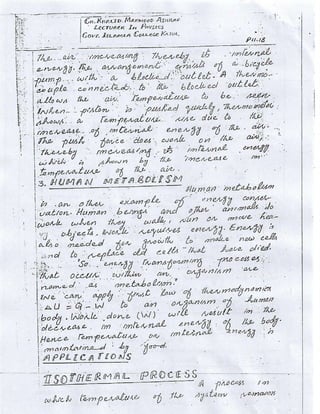 CH. KHALID MAHMOOD ASHRAF
LECTURER IN PHYSICS
GOVT. ISLAMIA COLLEGE KASUR.
P11-18
The air increasing thereby its internal
energy. The arrangement consists of a bicycle
pump with a blocked outlet. A thermo-
couple connected to the blocked outlet
allows the air temperature to be seen
when piston is pushed quickly, thermometer
shows a temperature rise due to the
increase of internal energy of the air.
The push force does work on the air,
thereby increasing its internal energy
which is shown by the increase in
temperature of the air.
3. HUMAN METABOLISM
Human metabolism
is an other example of energy conser-
vation. Human beings and other animals do
work when they walk, run or move hea-
vy objects. Work requires energy. Energy is
also needed for growth to make new cells
and to replace old cells that have died.
So energy transforming processes
that occur within an organism are
named as metabolism.
We can apply first law of thermodynamics
ΔU = Q - W to an organism of human
body. Work done (W) will result in the
decrease in internal energy of the body.
Hence temperature or internal energy is
maintained by food.
APPLICATIONS
ISOTHERMAL PROCESS
A process in
which temperature of the system remains